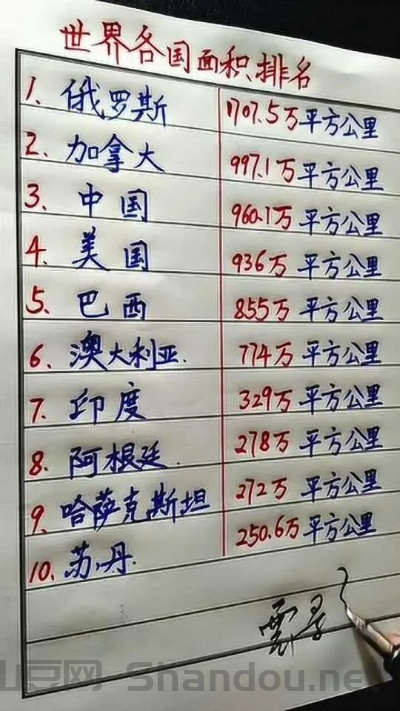 世界各国面积排名
1. 俄罗斯 1707.5万平方公里
2. 加拿大 997.1万平方公里
3. 中国 960.1万平方公里
4. 美国 936万平方公里
5. 巴西 855万平方公里
6. 澳大利亚. 774万平方公里
7. 印度 329万平方公里
8. 阿根廷. 278万平方公里
9. 哈萨克斯坦 272万平方公里
10. 苏丹. 250.6万平方公里
山豆网 Shandou.net